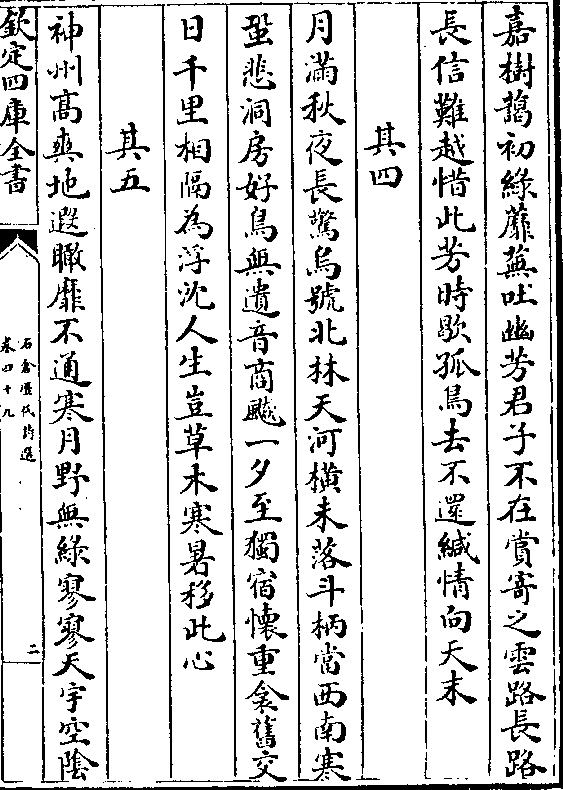 嘉樹藹初綠蘼蕪吐幽芳君子不在賞寄之雲路長路
長信難越惜此芳時歇孤鳥去不還緘情向天末
其四
月滿秋夜長驚烏號北林天河橫未落斗柄當西南寒
蛩悲洞房好鳥無遺音商飈一夕至獨宿懷重衾舊交
日千里相隔為浮沈人生豈草木寒暑移此心
其五
神州髙爽地遐瞰靡不通寒月野無綠寥寥天宇空陰
欽定四庫全書
石倉歷代詩選
卷四十九
二